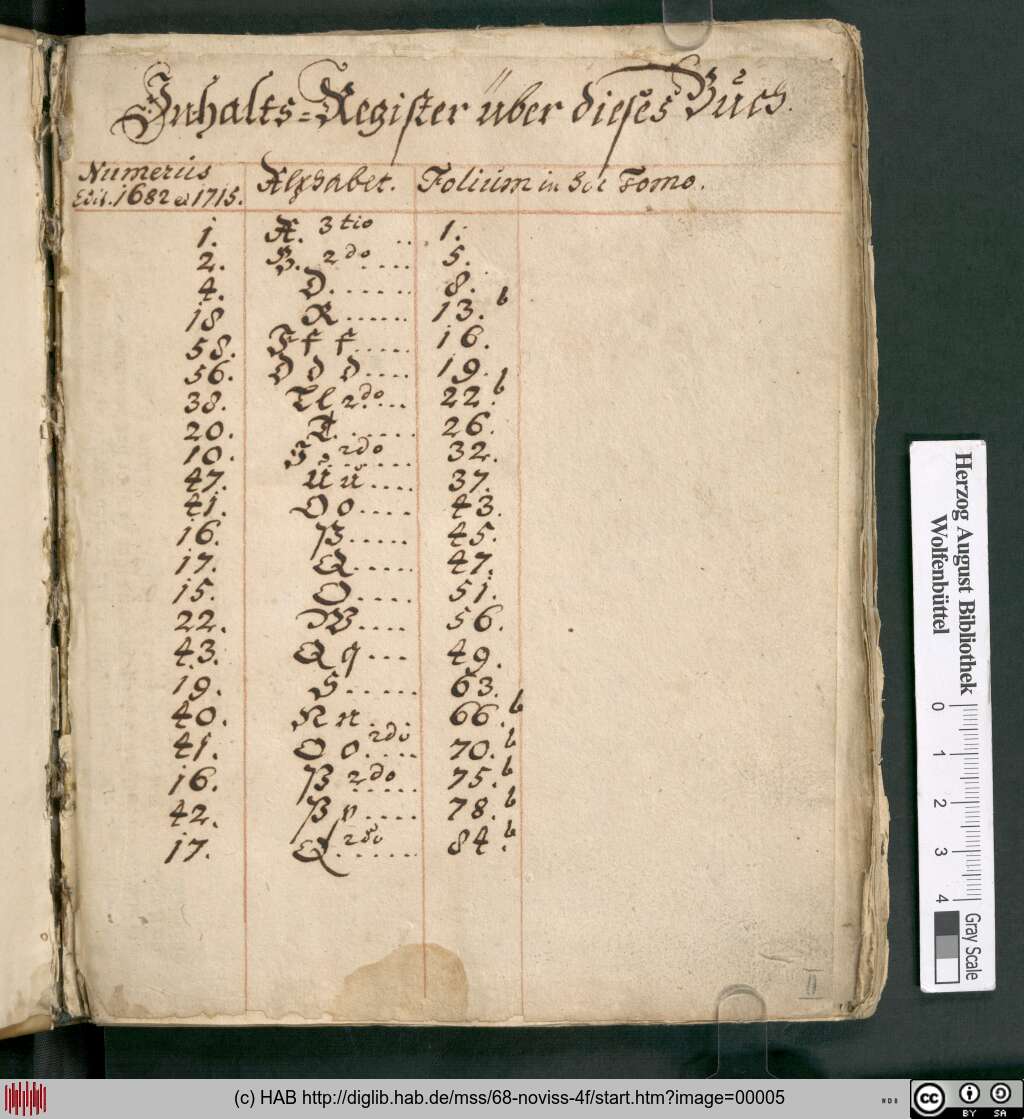 Inhalts=Register über dieses Buch.
Numerus Alphabet. Folium in hoc Tomo.
Edit. 1682 et 1715.
1. A. 3tio .. 1.
2. B. 2do .... 5.
4. D. ...... 8.
18 R ...... 13. b
58. F f f ..... 16.
56. D d d .... 19.
38. L l 2do ... 22. b
20. T. ...... 26.
10. J. 2do ...... 32.
47. U u .... 37.
41. O o .... 43.
16. P ..... 45.
17. Q ..... 47.
15. O .... 51.
22. W .... 56.
43. Q q ... 49.
19. S ..... 63.
40. N n ... 66. b
41. O o 2do .... 70. b
16. P 2do ..... 75. b
42. P p .... 78. b
17. Q 2do ...... 84. b
II
Herzog August Bibliothek
Wolfenbüttel
0 1 2 3 4
Gray Scale
(c) HAB http://diglib.hab.de/mss/68-noviss-4f/start.htm?image=00005
cc BY SA